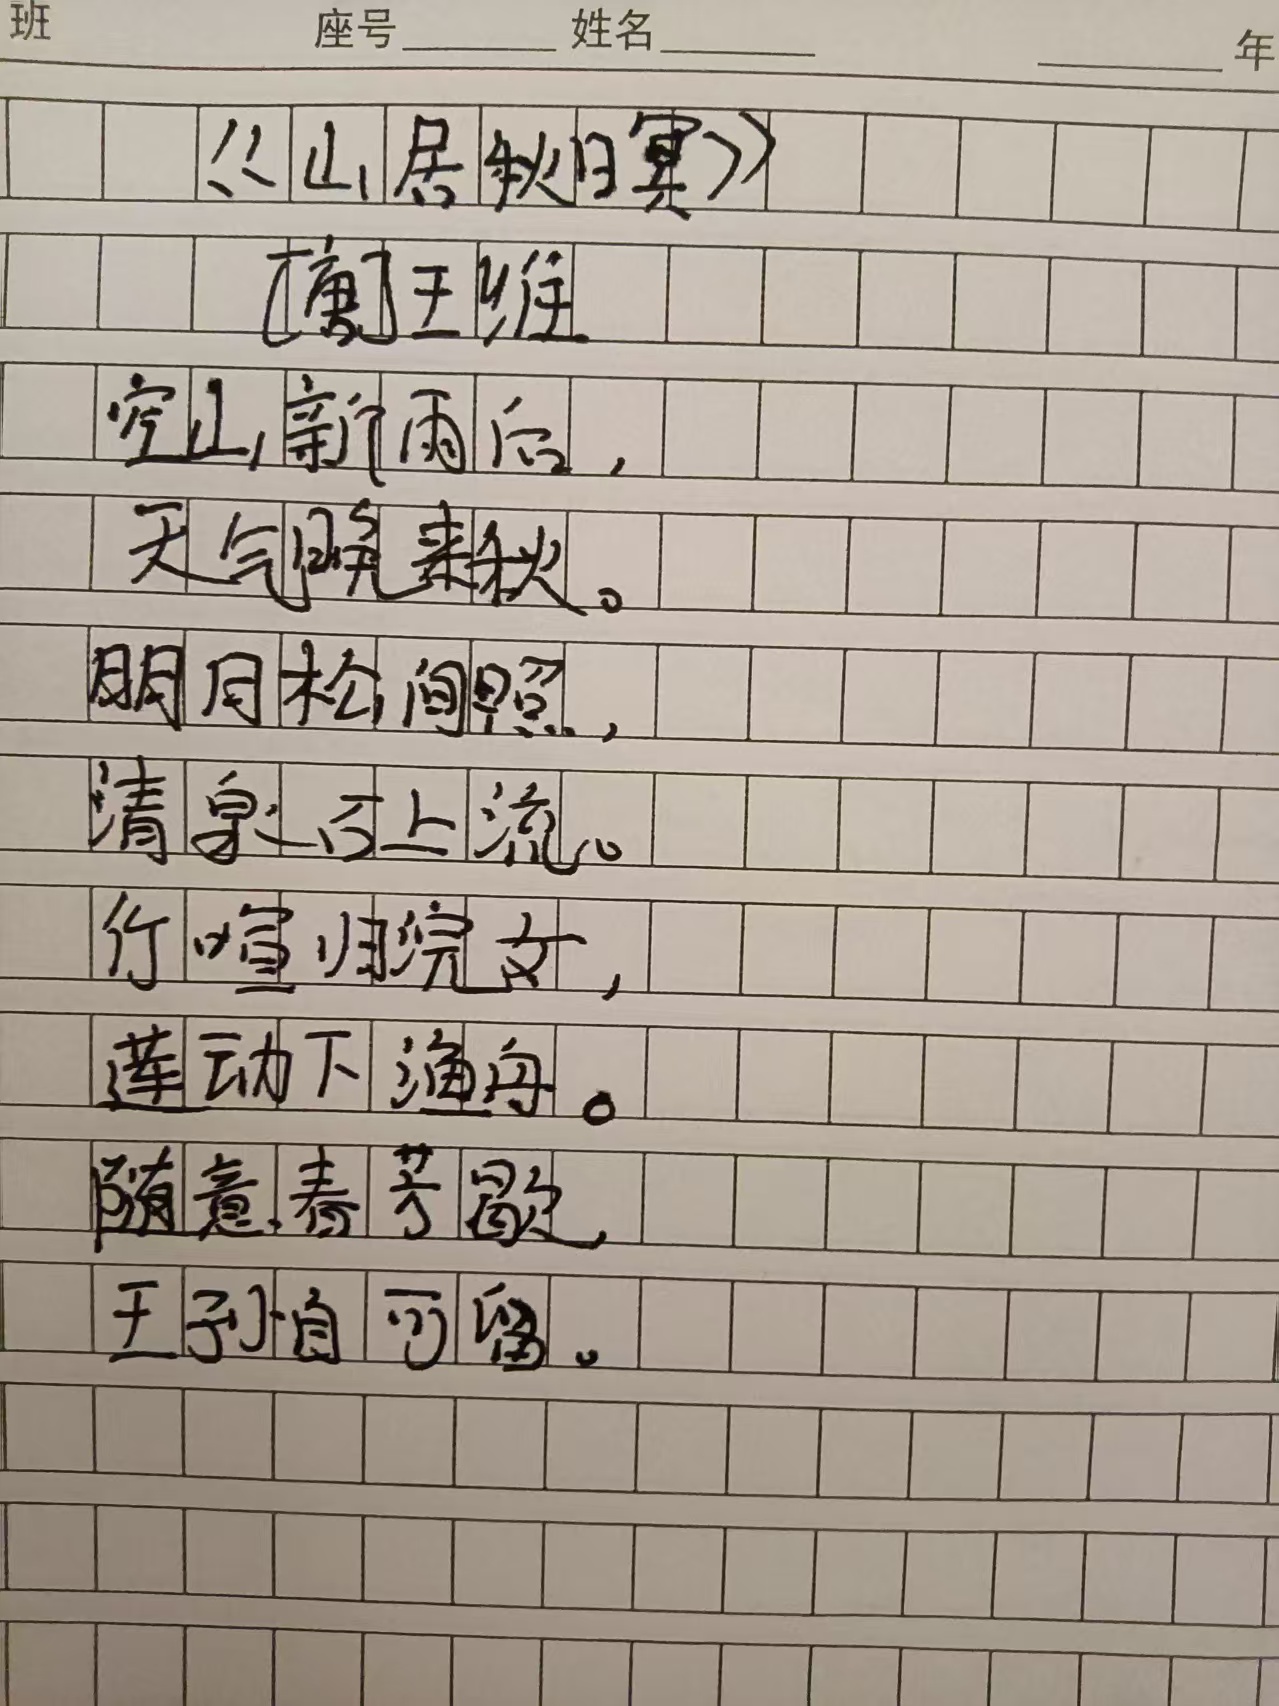 班 座号 姓名 年
《山居秋暝》
[唐]王维
空山新雨后，
天气晚来秋。
明月松间照，
清泉石上流。
行喧归浣女，
莲动下渔舟。
随意春芳歇，
王孙自可留。